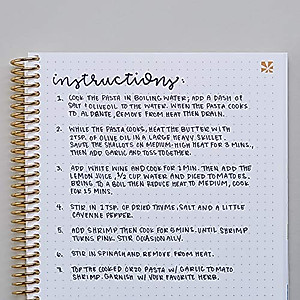 instructions:
1. COOK THE PASTA IN BOILING WATER; ADD A DASH OF
SALT & OLIVE OIL TO THE WATER. WHEN THE PASTA COOKS
TO AL DANTE, REMOVE FROM HEAT THEN DRAIN.
2. WHILE THE PASTA COOKS, HEAT THE BUTTER WITH
2 TBSP. OF OLIVE OIL IN A LARGE HEAVY SKILLET.
SAUTE THE SHALLOTS ON MEDIUM-HIGH HEAT FOR 3 MINS.,
THEN ADD GARLIC AND TOSS TOGETHER.
3. ADD WHITE WINE AND COOK FOR 2 MIN. THEN ADD THE
LEMON JUICE, 1/2 CUP WATER AND DICED TOMATOES.
BRING TO A BOIL THEN REDUCE HEAT TO MEDIUM, COOK
FOR 15 MINS.
4. STIR IN 2 TSP. OF DRIED THYME, SALT AND A LITTLE
CAYENNE PEPPER.
5. ADD SHRIMP THEN COOK FOR 6 MINS, UNTIL SHRIMP
TURNS PINK. STIR OCASIONALLY.
6. STIR IN SPINACH AND REMOVE FROM HEAT.
7. TOP THE COOKED ORZO PASTA W/ GARLIC TOMATO
SHRIMP. GARNISH W/ YOUR FAVORITE HERB.